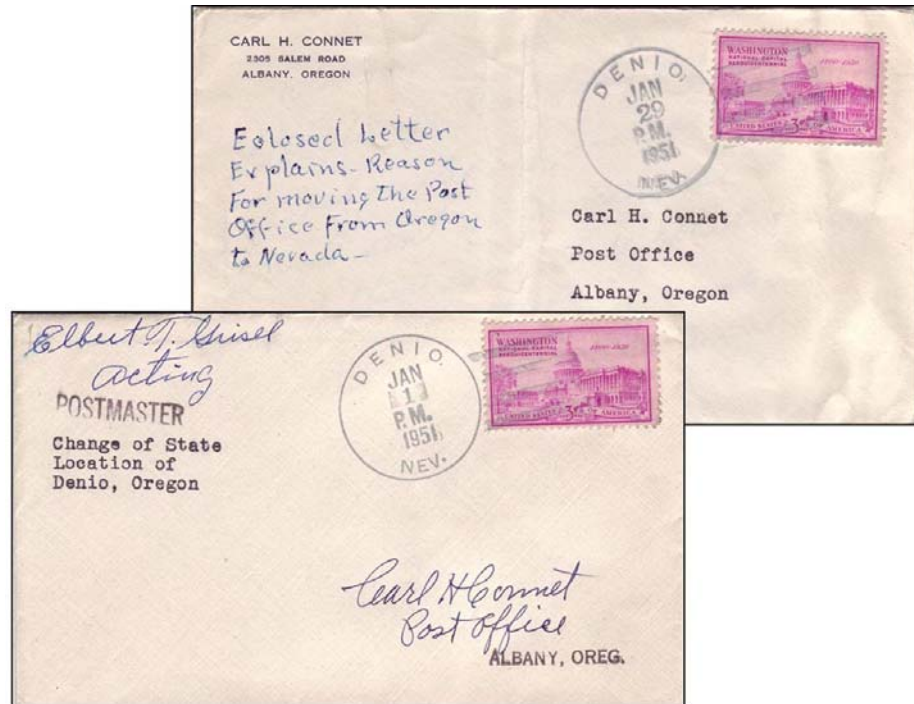 CARL H. CONNET
2305 SALEM ROAD
ALBANY, OREGON
Eclosed Letter
Explains-Reason
For moving The Post
Office From Oregon
to Nevada-
DENIO
JAN
29
P.M.
1951
NEV.
WASHINGTON
NATIONAL CAPITAL
SESQUICENTENNIAL
1800-1950
UNITED STATES 3¢ OF AMERICA
Carl H. Connet
Post Office
Albany, Oregon
Elbert T. Grisel
acting
POSTMASTER
Change of State
Location of
Denio, Oregon
DENIO
JAN
1
P.M.
1951
NEV.
WASHINGTON
NATIONAL CAPITAL
SESQUICENTENNIAL
1800-1950
UNITED STATES 3¢ OF AMERICA
Carl H Connet
Post Office
ALBANY, OREG.